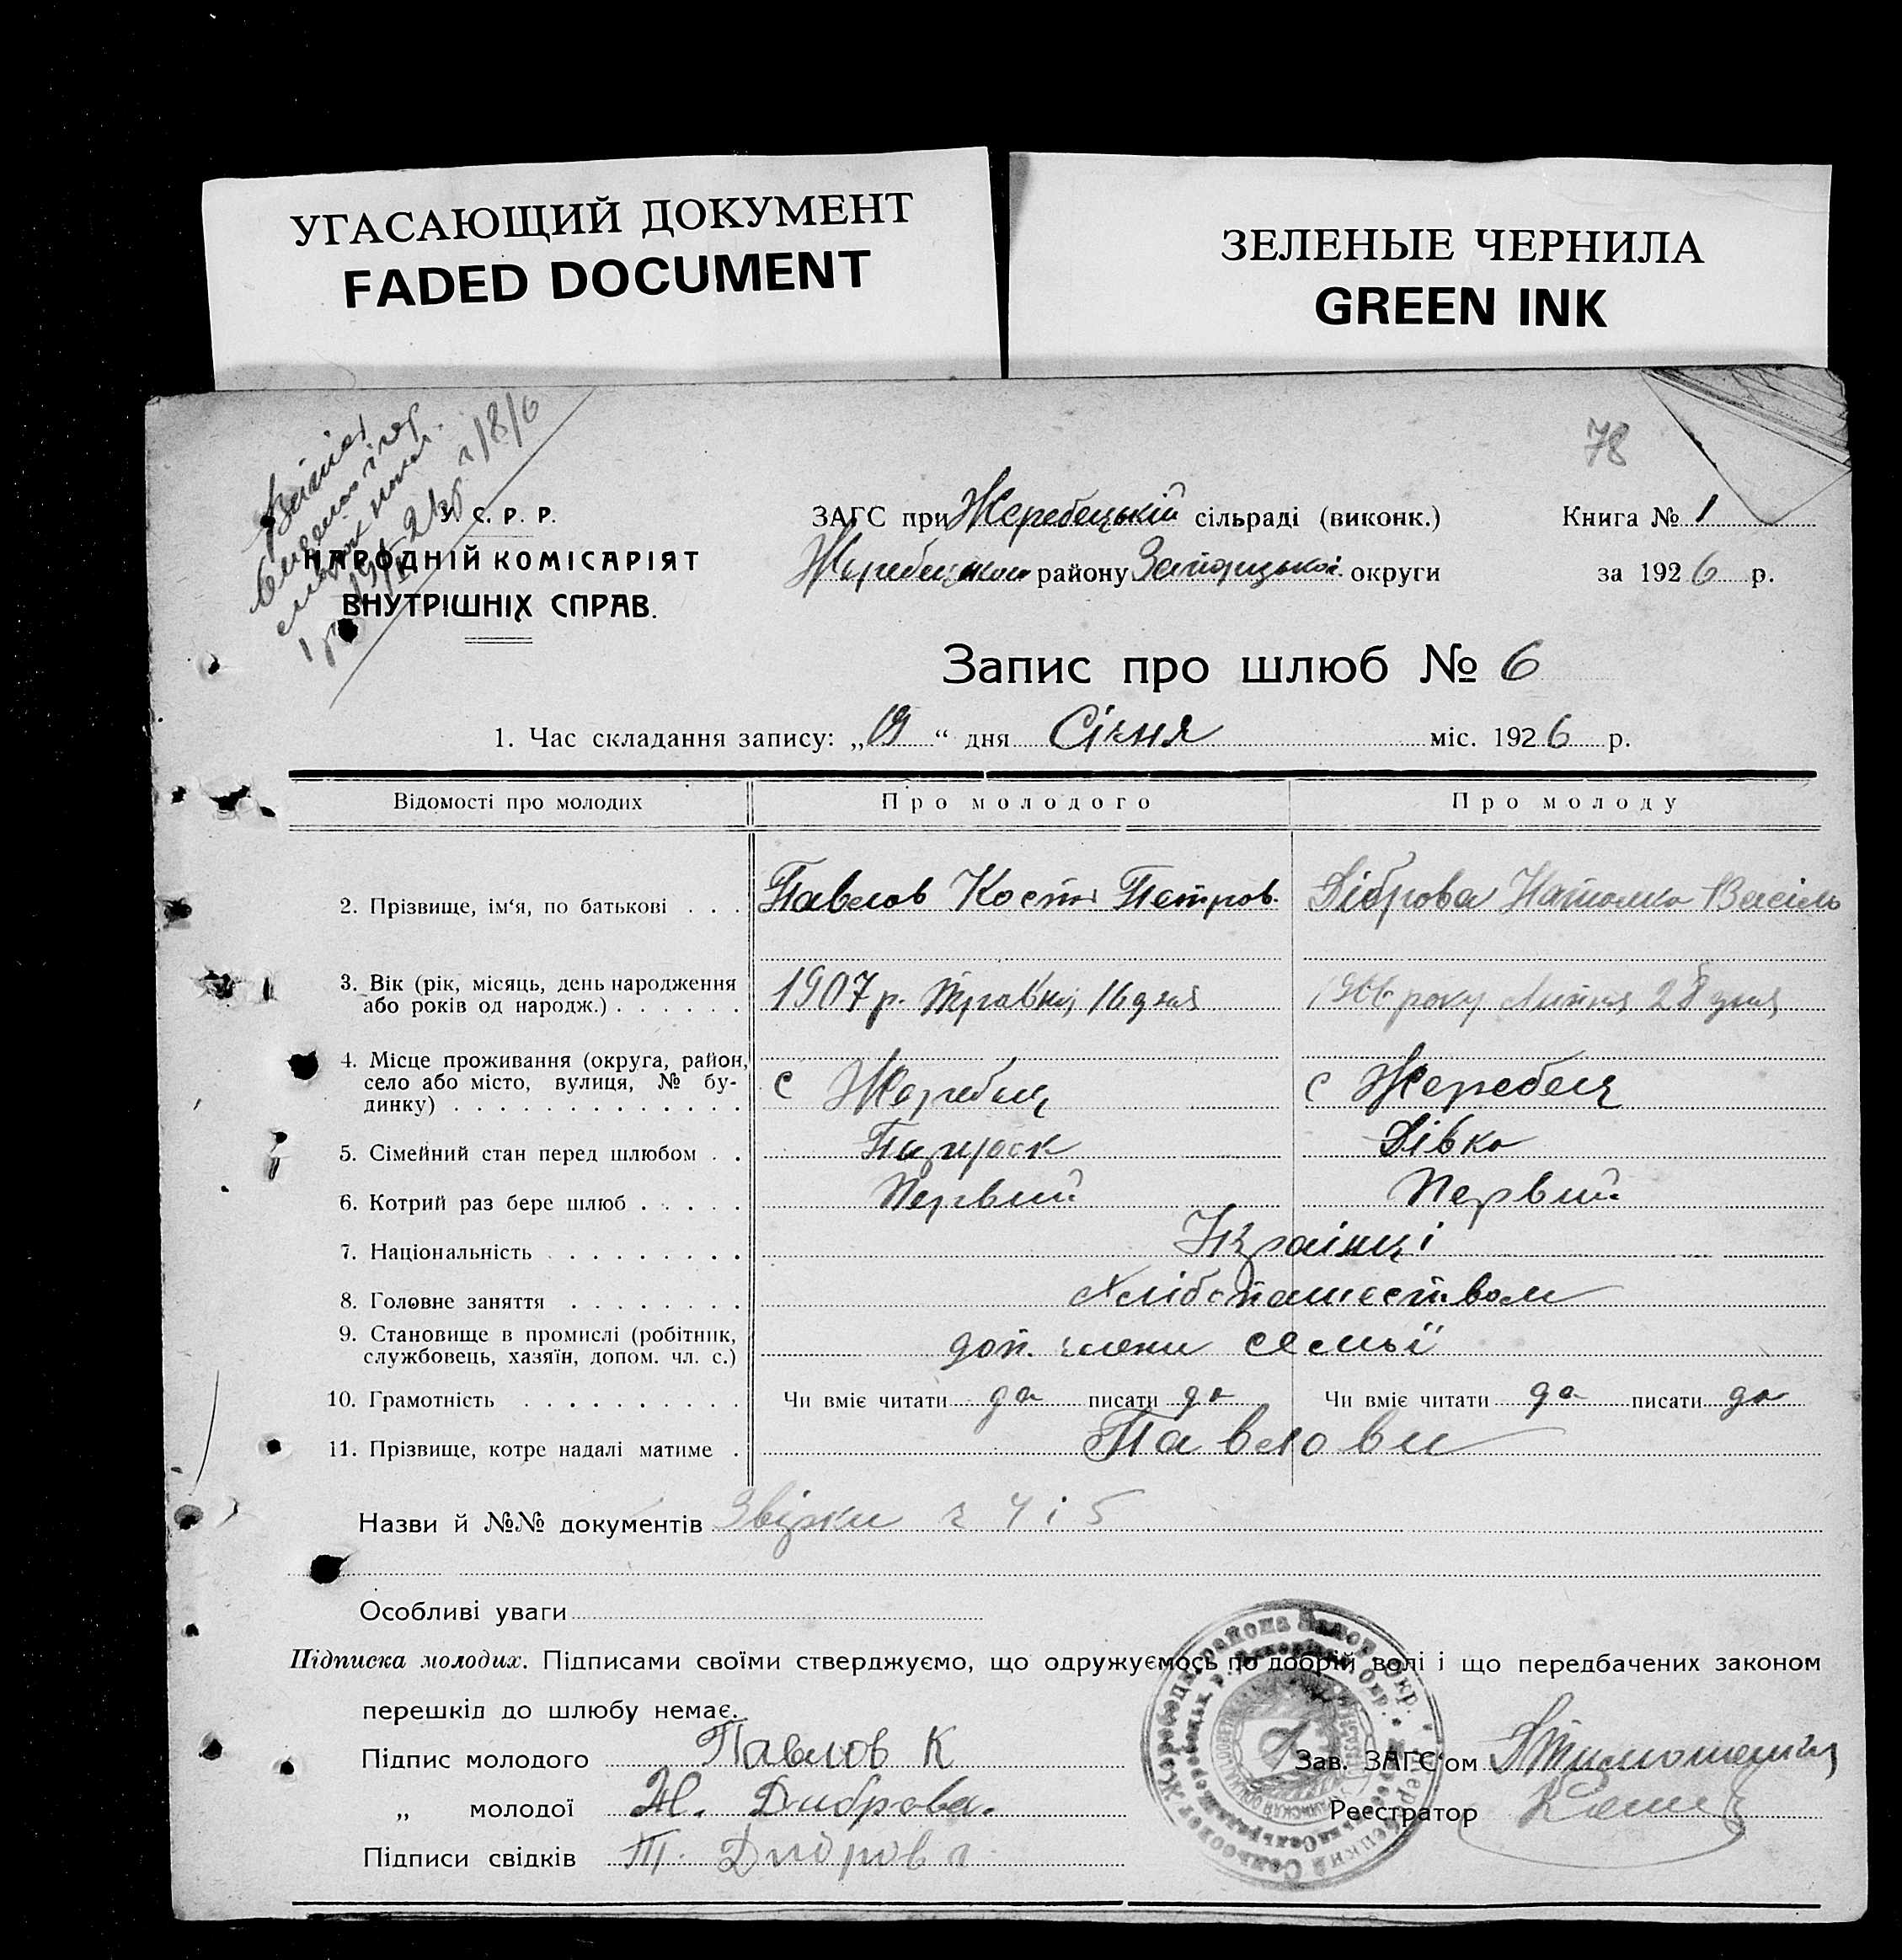 УГАСАЮЩИЙ ДОКУМЕНТ
FADED DOCUMENT
ЗЕЛЕНЫЕ ЧЕРНИЛА
GREEN INK
78
У. С. Р. Р.
НАРОДНІЙ КОМІСАРІЯТ
ВНУТРІШНІХ СПРАВ.
ЗАГС при Жеребецькій сільраді (виконк.)
Книга № 1
Жеребецького району Запоріцької округи
за 1926 р.
Запис про шлюб № 6
1. Час складання запису: „19“ дня Січня міс. 1926 р.
Відомості про молодих
Про молодого
Про молоду
2. Прізвище, ім‘я, по батькові . . .
Павлов Кость Петров.
Діброва Наталка Василь
3. Вік (рік, місяць, день народження
або років од народж.) . . . . . .
1907 р. Травня 16 дня
року Липня 28 дня
4. Місце проживання (округа, район,
село або місто, вулиця, № бу-
динку) . . . . . . . . . . . . .
с Жеребец
с Жеребец
5. Сімейний стан перед шлюбом . .
Парубок
Дівка
6. Котрий раз бере шлюб . . . . .
Первий
Первий
7. Національність . . . . . . . . .
Українці
8. Головне заняття . . . . . . . .
Хлібопашеством
9. Становище в промислі (робітник,
службовець, хазяїн, допом. чл. с.)
доп. члени семьї
10. Грамотність . . . . . . . . . .
Чи вміє читати да писати да
Чи вміє читати да писати да
11. Прізвище, котре надалі матиме .
Павлови
Назви й №№ документів Звірки 4 і 5
Особливі уваги
Підписка молодих. Підписами своїми стверджуємо, що одружуємось по добрій волі і що передбачених законом
перешкід до шлюбу немає.
Підпис молодого Павлов К
Зав. ЗАГС‘ом
„ молодої Н. Диброва.
Реєстратор
Підписи свідків Т. Диброва